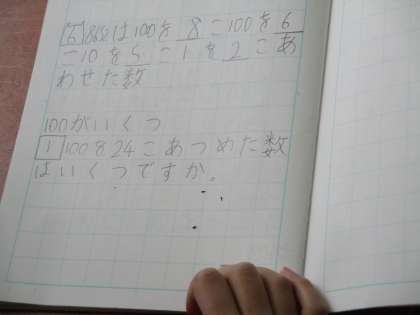 6 8652は100を 8 こ100を 6
こ10を 5 こ 1を 2 こあ
わせた数
100がいくつ
1 100を24こあつめた数
はいくつですか。